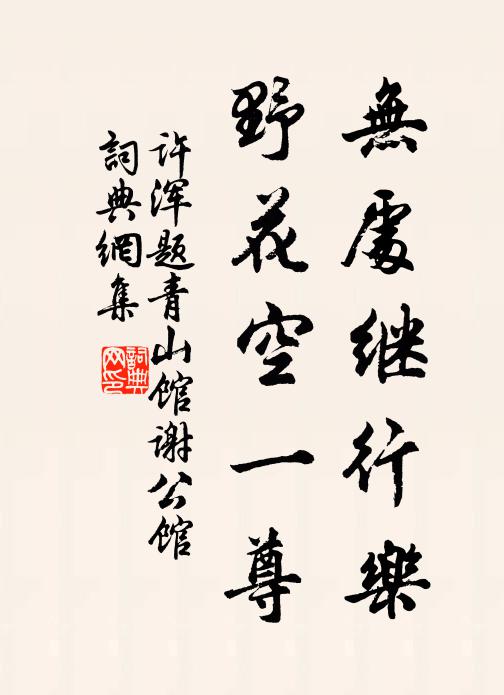 無處继行樂
野花空一尊
许浑题青山馆谢公馆
詞典網集
詞典网印